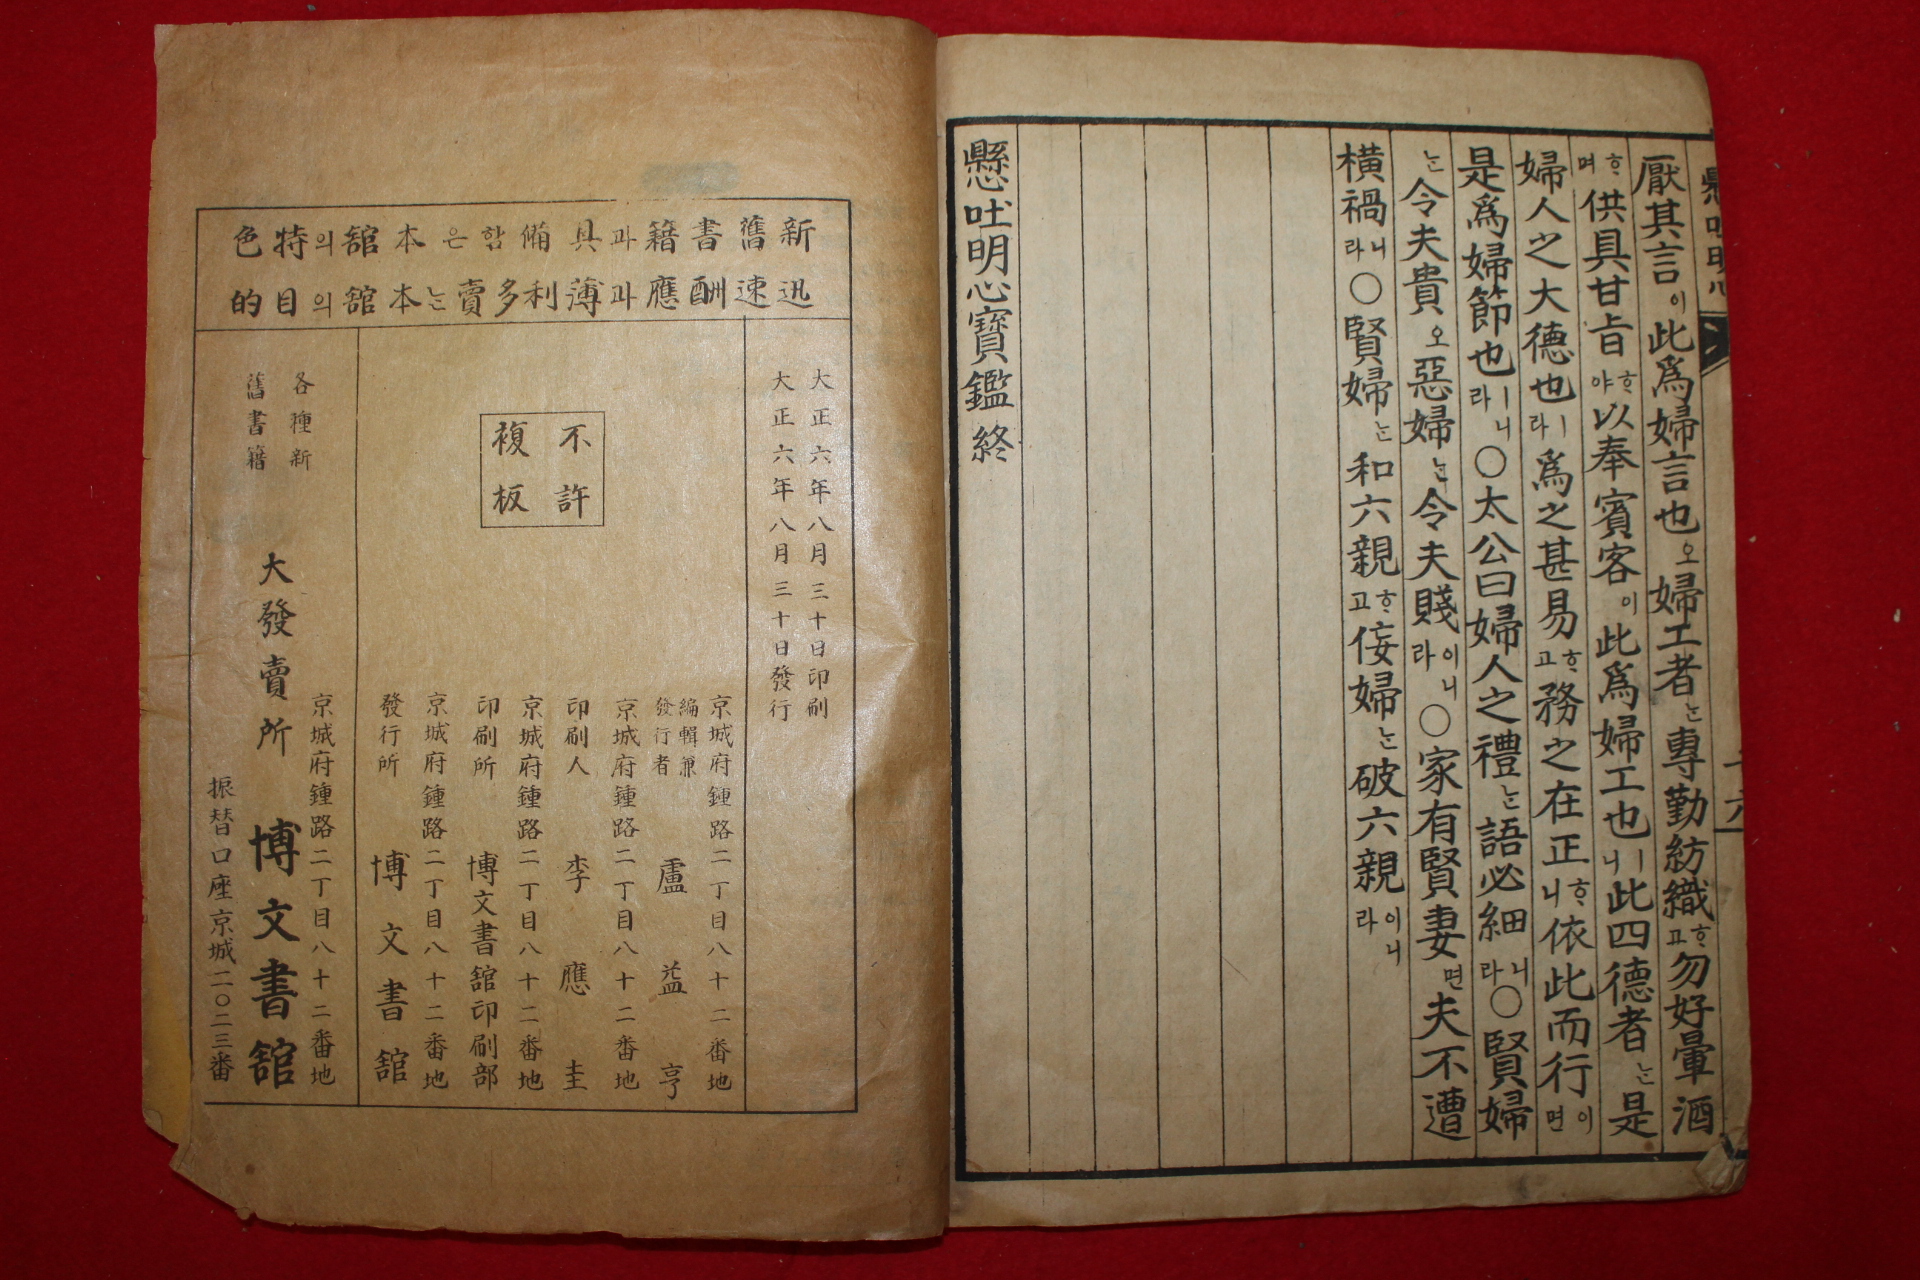 懸吐明心
二六
厭其言이此爲婦言也오婦工者는專勤紡織ᄒᆞ고勿好暈酒
ᄒᆞ며供具甘旨ᄒᆞ야以奉賓客이此爲婦工也ㅣ니此四德者는是
婦人之大德也ㅣ라爲之甚易ᄒᆞ고務之在正ᄒᆞ니依此而行이면
是爲婦節也ㅣ니라○太公曰婦人之禮는語必細니라○賢婦
는令夫貴오惡婦는令夫賤이니라○家有賢妻면夫不遭
橫禍니라○賢婦는和六親ᄒᆞ고侫婦는破六親이니라
懸吐明心寶鑑終
新舊書籍과具備함은本舘의特色
迅速酬應과薄利多賣는本舘의目的
大正六年八月三十日印刷
大正六年八月三十日發行
不許複板
京城府鍾路二丁目八十二番地
編輯兼發行者 盧益亨
京城府鍾路二丁目八十二番地
印刷人 李應圭
京城府鍾路二丁目八十二番地
印刷所 博文書舘印刷部
京城府鍾路二丁目八十二番地
發行所 博文書舘
各種新舊書籍
京城府鍾路二丁目八十二番地
大發賣所 博文書舘
振替口座京城二〇二三番